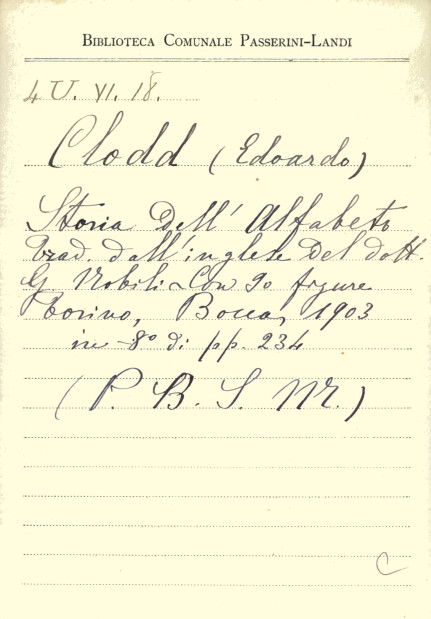 BIBLIOTECA COMUNALE PASSERINI-LANDI
4 U. VI. 18.
Clodd (Edoardo)
Storia Dell' Alfabeto
Trad. dall'inglese del dott.
G. Nobili - Con 90 figure
Torino, Bocca, 1903
in-8° di pp. 234
(P. B. S. M.)
C